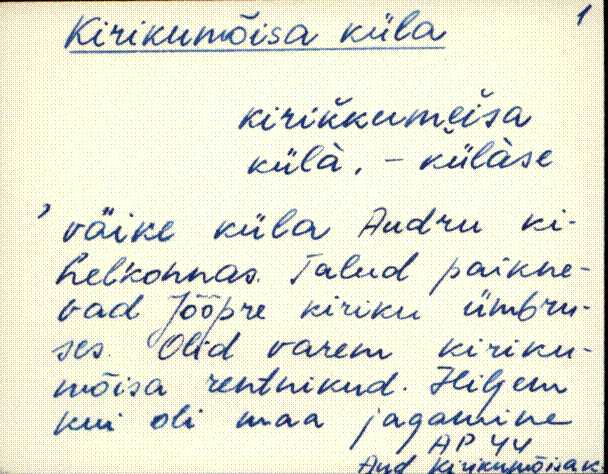 1
Kirikumõisa küla
kirikkumeìsa
külà, - külàse
' väike küla Audru ki-
helkonnas. Talud paikne-
vad Jõõpre kiriku ümbru-
ses. Olid varem kiriku-
mõisa rentnikud. Hiljem
kui oli maa jagamine
AP 44
Aud Kirikumõisa k